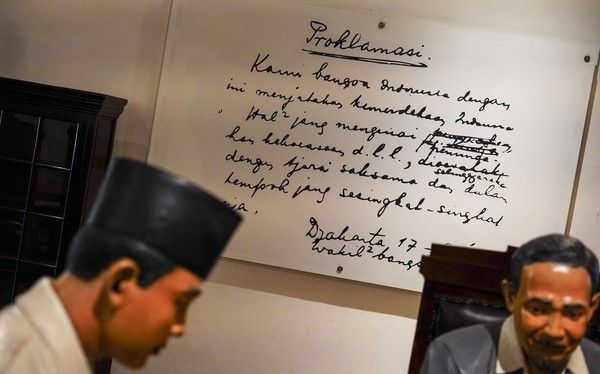 Proklamasi.
Kami bangsa Indonesia dengan
ini menjatakan kemerdekaan Indonesia
Hal² jang mengenai pemindahan
kekoeasaan d.l.l., diselenggarakan
dengan tjara saksama dan dalam
tempoh jang sesingkat-singkat
nja.
Djakarta 17 -
Wakil² bangsa